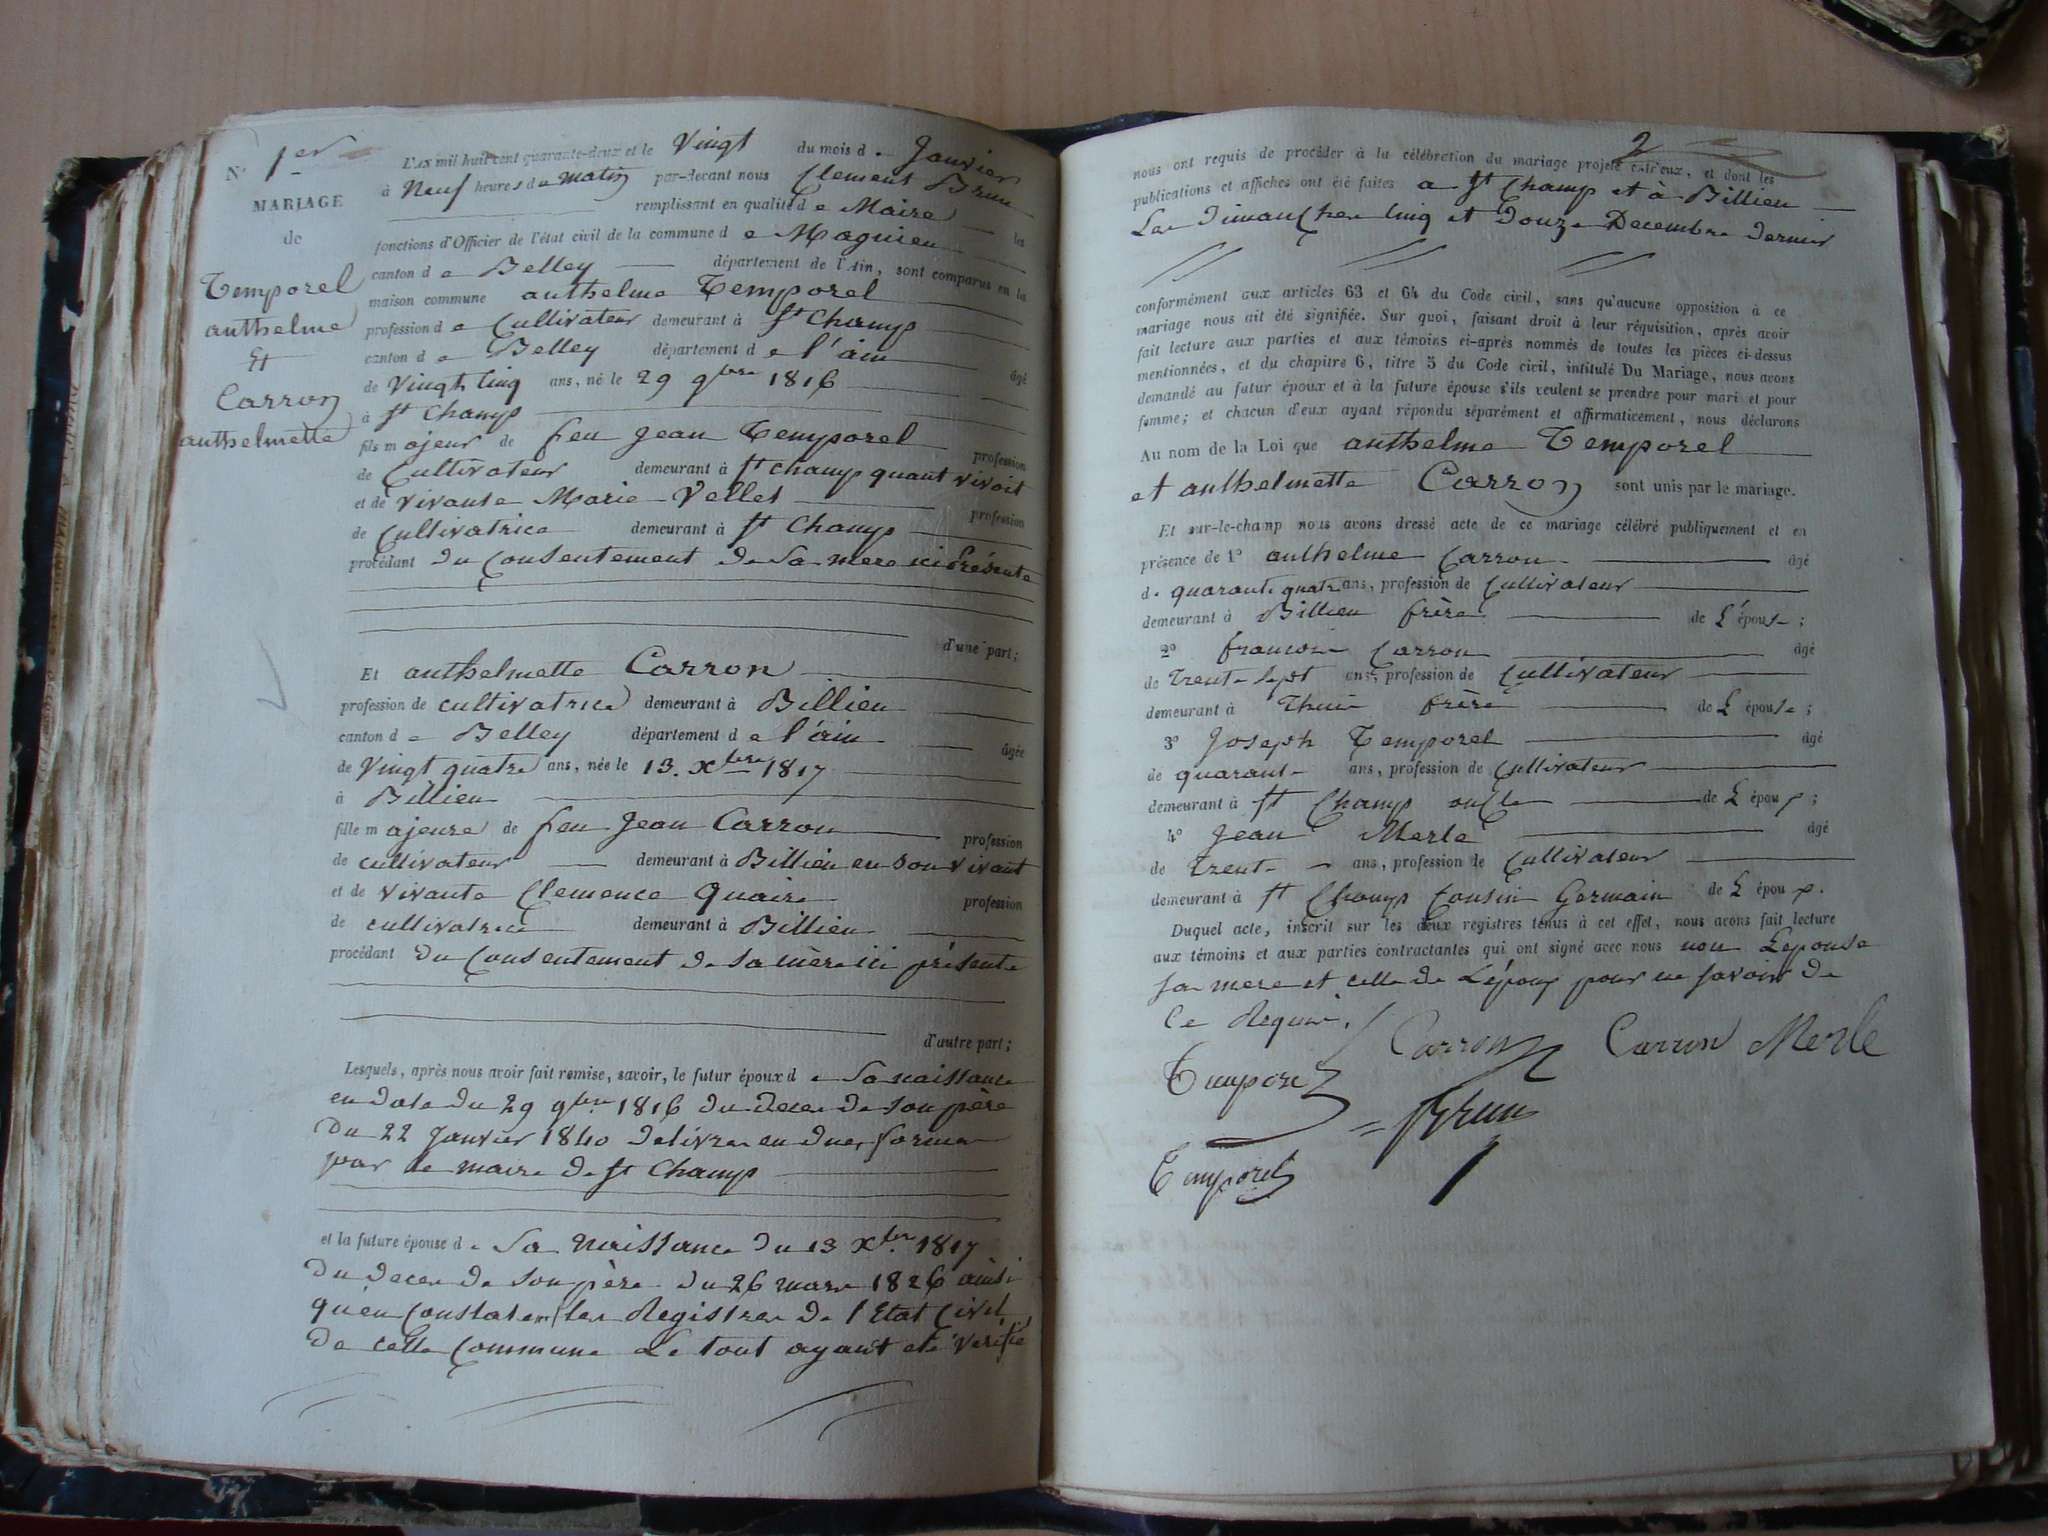 N° 1er
MARIAGE
de
Temporel
anthelme
Et
Carron
anthelmette
L'AN mil huit cent quarante-deux et le Vingt du mois de Janvier
à Neuf heures du matin par-devant nous Clement Brun
remplissant en qualité de Maire les
fonctions d'Officier de l'état civil de la commune de Magnieu
canton de Belley département de l'Ain, sont comparus en la
maison commune anthelme Temporel
profession de Cultivateur demeurant à St Champ
canton de Belley département de l'ain âgé
de Vingt Cinq ans, né le 29 9bre 1816
à St Champ
fils majeur de feu Jean Temporel profession
de Cultivateur demeurant à St champ quant vivoit
et de vivante Marie Vellet profession
de Cultivatrice demeurant à St Champ
procédant du Consentement de sa mere ici Présente
d'une part;
Et anthelmette Carron
profession de cultivatrice demeurant à Billieu
canton de Belley département de l'ain âgée
de Vingt quatre ans, née le 13 Xbre 1817
à Billieu
fille majeure de feu Jean Carron profession
de cultivateur demeurant à Billieu en son vivant
et de vivante Clemence Quaire profession
de cultivatrice demeurant à Billieu
procédant du Consentement de sa mère ici présente
d'autre part;
Lesquels, après nous avoir fait remise, savoir, le futur époux de Sa naissance
en date du 29 9bre 1816 du deces de son père
du 22 Janvier 1840 Delivres en dues formes
par le maire de St Champ
et la future épouse de Sa Naissance du 13 Xbre 1817
du deces de son père du 26 mars 1826 ainsi
qu'en Constatent les Registres de l'Etat Civil
de cette Commune Le tout ayant été verifié
2
nous ont requis de procéder à la célébration du mariage projeté entr'eux, et dont les
publications et affiches ont été faites a St Champ et à Billieu
Les Dimanches Cinq et Douze Decembre dernier
conformément aux articles 63 et 64 du Code civil, sans qu'aucune opposition à ce
mariage nous ait été signifiée. Sur quoi, faisant droit à leur réquisition, après avoir
fait lecture aux parties et aux témoins ci-après nommés de toutes les pièces ci-dessus
mentionnées, et du chapitre 6, titre 5 du Code civil, intitulé Du Mariage, nous avons
demandé au futur époux et à la future épouse s'ils veulent se prendre pour mari et pour
femme; et chacun d'eux ayant répondu séparément et affirmativement, nous déclarons
Au nom de la Loi que anthelme Temporel
et anthelmette Carron sont unis par le mariage.
Et sur-le-champ nous avons dressé acte de ce mariage célébré publiquement et en
présence de 1° anthelme Carron âgé
de quarante quatre ans, profession de Cultivateur
demeurant à Billieu frère de L'épouse;
2° francois Carron âgé
de Trente Sept ans, profession de Cultivateur
demeurant à frère de L'épouse;
3° Joseph Temporel âgé
de quarante ans, profession de Cultivateur
demeurant à St Champ oncle de L'époux;
4° Jean Merle âgé
de Trente ans, profession de Cultivateur
demeurant à St Champ Cousin Germain de L'époux.
Duquel acte, inscrit sur les deux registres tenus à cet effet, nous avons fait lecture
aux témoins et aux parties contractantes qui ont signé avec nous non L'épouse
sa mere et celle de L'époux pour ne savoir de
Ce Requis.
Carron Carron Merle
Temporel
Brun
Temporel